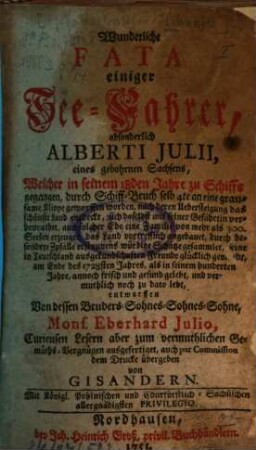 Wunderliche
FATA
einiger
See-Fahrer,
absonderlich
ALBERTI JULII,
eines gebohrnen Sachsens,
Welcher in seinem 18den Jahre zu Schiffe
gegangen, durch Schiff-Bruch selb 4te an eine grau-
same Klippe geworffen worden, nach deren Übersteigung das
schönste Land entdeckt, sich daselbst mit seiner Gefährtin ver-
heyrathet, aus solcher Ehe eine Familie von mehr als 300.
Seelen erzeuget, das Land vortrefflich angebauet, durch be-
sondere Zufälle erstaunens-würdige Schätze gesammlet, seine
in Teutschland ausgekundschafften Freunde glücklich gemacht,
am Ende des 1728sten Jahres, als in seinem hunderten
Jahre, annoch frisch und gesund gelebt, und ver-
muthlich noch zu dato lebt,
entworffen
Von dessen Bruders-Sohnes-Sohnes-Sohne,
Mons. Eberhard Julio,
Curieusen Lesern aber zum vermuthlichen Ge-
müths-Vergnügen ausgefertiget, auch par Commission
dem Drucke übergeben
von
GISANDERN.
Mit Königl. Pohlnischen und Churfürstlich-Sächsischen
allergnädigsten PRIVILEGIO.
Nordhausen,
bey Joh. Heinrich Groß, privil. Buchhändlern.